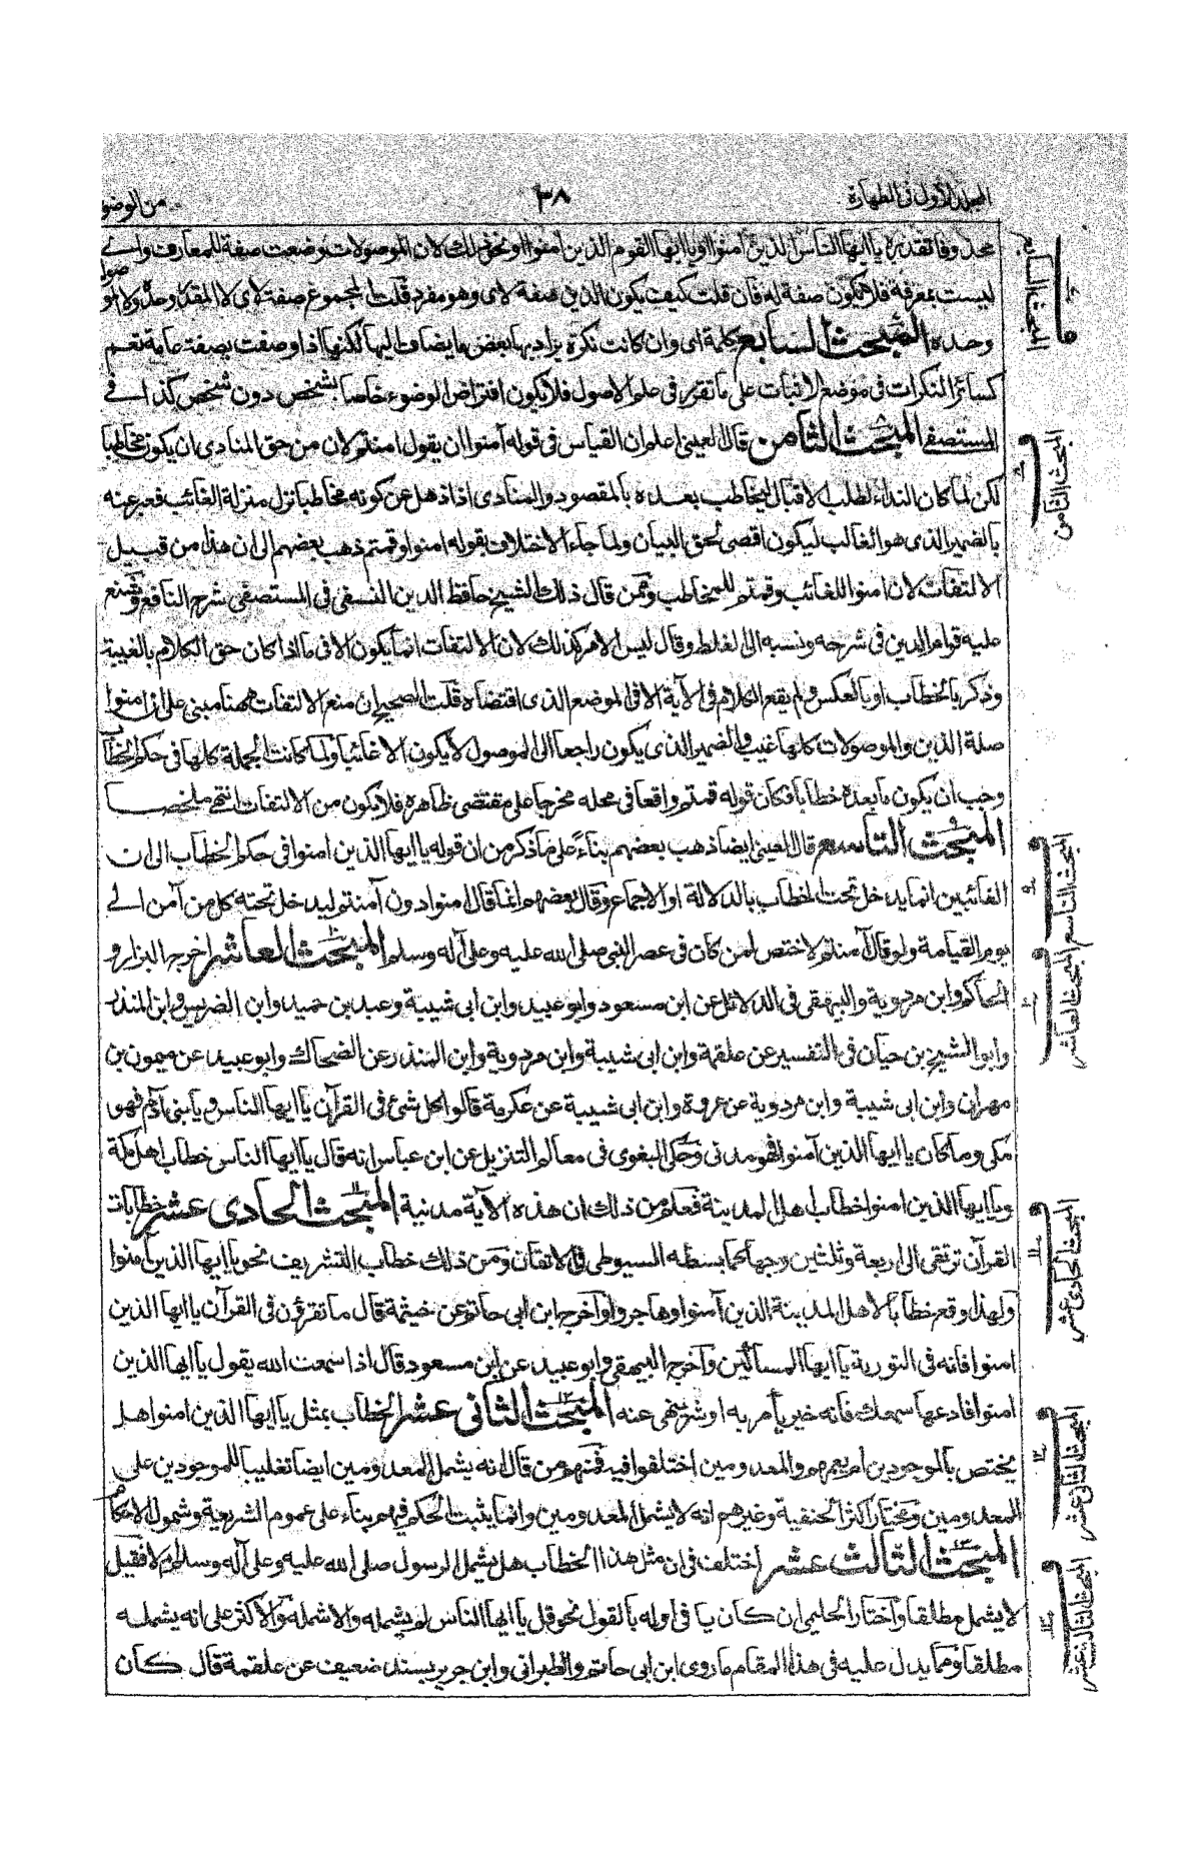 المجلد الأول فى الطهارة
٣٨
من الوضوء
محذوفا تقديره يا ايها الناس الذين آمنوا او يا ايها القوم الذين امنوا او نحو ذلك لان الموصولات وضعت صفة للمعارف واى
ليست بمعرفة فلا يكون صفة له فان قلت كيف يكون الذين صفة لاى وهو مفرد قلت المجموع صفة لاى لا المقدر وحده ولا هو
وحده المبحث السابع كلمة اى وان كانت نكرة يراد بها بعض ما يضاف اليها لكنها اذا وصفت بصفة عامة تعم
كسائر النكرات فى موضع الاثبات على ما تقرر فى علم الاصول فلا يكون افتراض الوضوء خاصا بشخص دون شخص كذا فى
المستصفى المبحث الثامن قال العينى اعلم ان القياس فى قوله آمنوا ان يقول امنتم لان من حق المنادى ان يكون مخاطبا
لكن لما كان النداء لطلب الاقبال ليخاطب بعده بالمقصود والمنادى اذا ذهل عن كونه مخاطبا نزل منزلة الغائب فعبر عنه
بالضمير الذى هو الغالب ليكون اقصى لحق البيان ولما جاء الاختلاف بقوله امنوا وقمتم ذهب بعضهم الى ان هذا من قبيل
الالتفات لان امنوا للغائب وقمتم للمخاطب وممن قال ذلك الشيخ حافظ الدين النسفى فى المستصفى شرح النافع وشنع
عليه قوام الدين فى شرحه ونسبه الى الغلط وقال ليس الامر كذلك لان الالتفات انما يكون الا فى ما اذا كان حق الكلام بالغيبة
وذكر بالخطاب او بالعكس ولم يقع الكلام فى الآية الا فى الموضع الذى اقتضاه قلت الصحيح ان منع الالتفات ههنا مبنى على ان امنوا
صلة الذين والموصولات كلها غيب والضمير الذى يكون راجعا الى الموصول لا يكون الا غائبا ولما كانت الجملة كلها فى حكم الخطاب
وجب ان يكون ما بعده خطابا فكان قوله قمتم واقعا فى محله مخرجا على مقتضى ظاهره فلا يكون من الالتفات انتهى ملخصا
المبحث التاسع قال العينى ايضا ذهب بعضهم بناءً على ما ذكر من ان قوله يا ايها الذين امنوا فى حكم الخطاب الى ان
الغائبين انما يدخل تحت الخطاب بالدلالة او الاجماع وقال بعضهم انما قال امنوا دون آمنتم ليدخل تحته كل من آمن الى
يوم القيامة ولو قال آمنتم لاختص لمن كان فى عصر النبى صلى الله عليه وعلى آله وسلم المبحث العاشر اخرج البزار و
الحاكم وابن مردوية والبيهقى فى الدلائل عن ابن مسعود وابو عبيد وابن ابى شيبة وعبد بن حميد وابن الضريس وابن المنذر
وابو الشيخ بن حيان فى التفسير عن علقمة وابن ابى شيبة وابن مردوية وابن المنذر عن الضحاك وابو عبيد عن ميمون بن
مهران وابن ابى شيبة وابن مردوية عن عروة وابن ابى شيبة عن عكرمة قالوا كل شئ فى القرآن يا ايها الناس و يا بنى آدم فهو
مكى وما كان يا ايها الذين آمنوا فهو مدنى وحكى البغوى فى معالم التنزيل عن ابن عباس انه قال يا ايها الناس خطاب اهل مكة
ويا ايها الذين امنوا خطاب اهل المدينة فعلم من ذلك ان هذه الآية مدنية المبحث الحادى عشر خطابات
القرآن ترتقى الى اربعة وثلثين وجها كما بسطه السيوطى فى الاتقان ومن ذلك خطاب التشريف نحو يا ايها الذين آمنوا
ولهذا وقع خطابا لاهل المدينة الذين آمنوا وهاجروا واخرج ابن ابى حاتم عن خيثمة قال ما تقرؤن فى القرآن يا ايها الذين
امنوا فانه فى التورية يا ايها المساكين وآخرج البيهقى وابو عبيد عن ابن مسعود قال اذا سمعت الله يقول يا ايها الذين
امنوا فادعها سمعك فانه خير يأمر به او شر ينهى عنه المبحث الثانى عشر الخطاب بمثل يا ايها الذين امنوا هل
يختص بالموجودين ام يعمهم والمعدومين اختلفوا فيه فمنهم من قال انه يشمل المعدومين ايضا تغليبا للموجودين على
المعدومين ومختار اكثر الحنفية وغيرهم انه لا يشمل المعدومين وانما يثبت الحكم فيهم بناء على عموم الشريعة وشمول الاحكام
المبحث الثالث عشر اختلف فى ان مثل هذا الخطاب هل يشمل الرسول صلى الله عليه وعلى آله وسلم ام لا فقيل
لا يشمل مطلقا وآختار الحليمى ان كان يا فى اوله بالقول نحو قل يا ايها الناس لم يشمله والا شمله والاكثر على انه يشمله
مطلقا ومما يدل عليه فى هذا المقام ما روى ابن ابى حاتم والطبرانى وابن جرير بسند ضعيف عن علقمة قال كان
المبحث السابع
المبحث الثامن
المبحث التاسع
المبحث العاشر
المبحث الحادى عشر
المبحث الثانى عشر
المبحث الثالث عشر